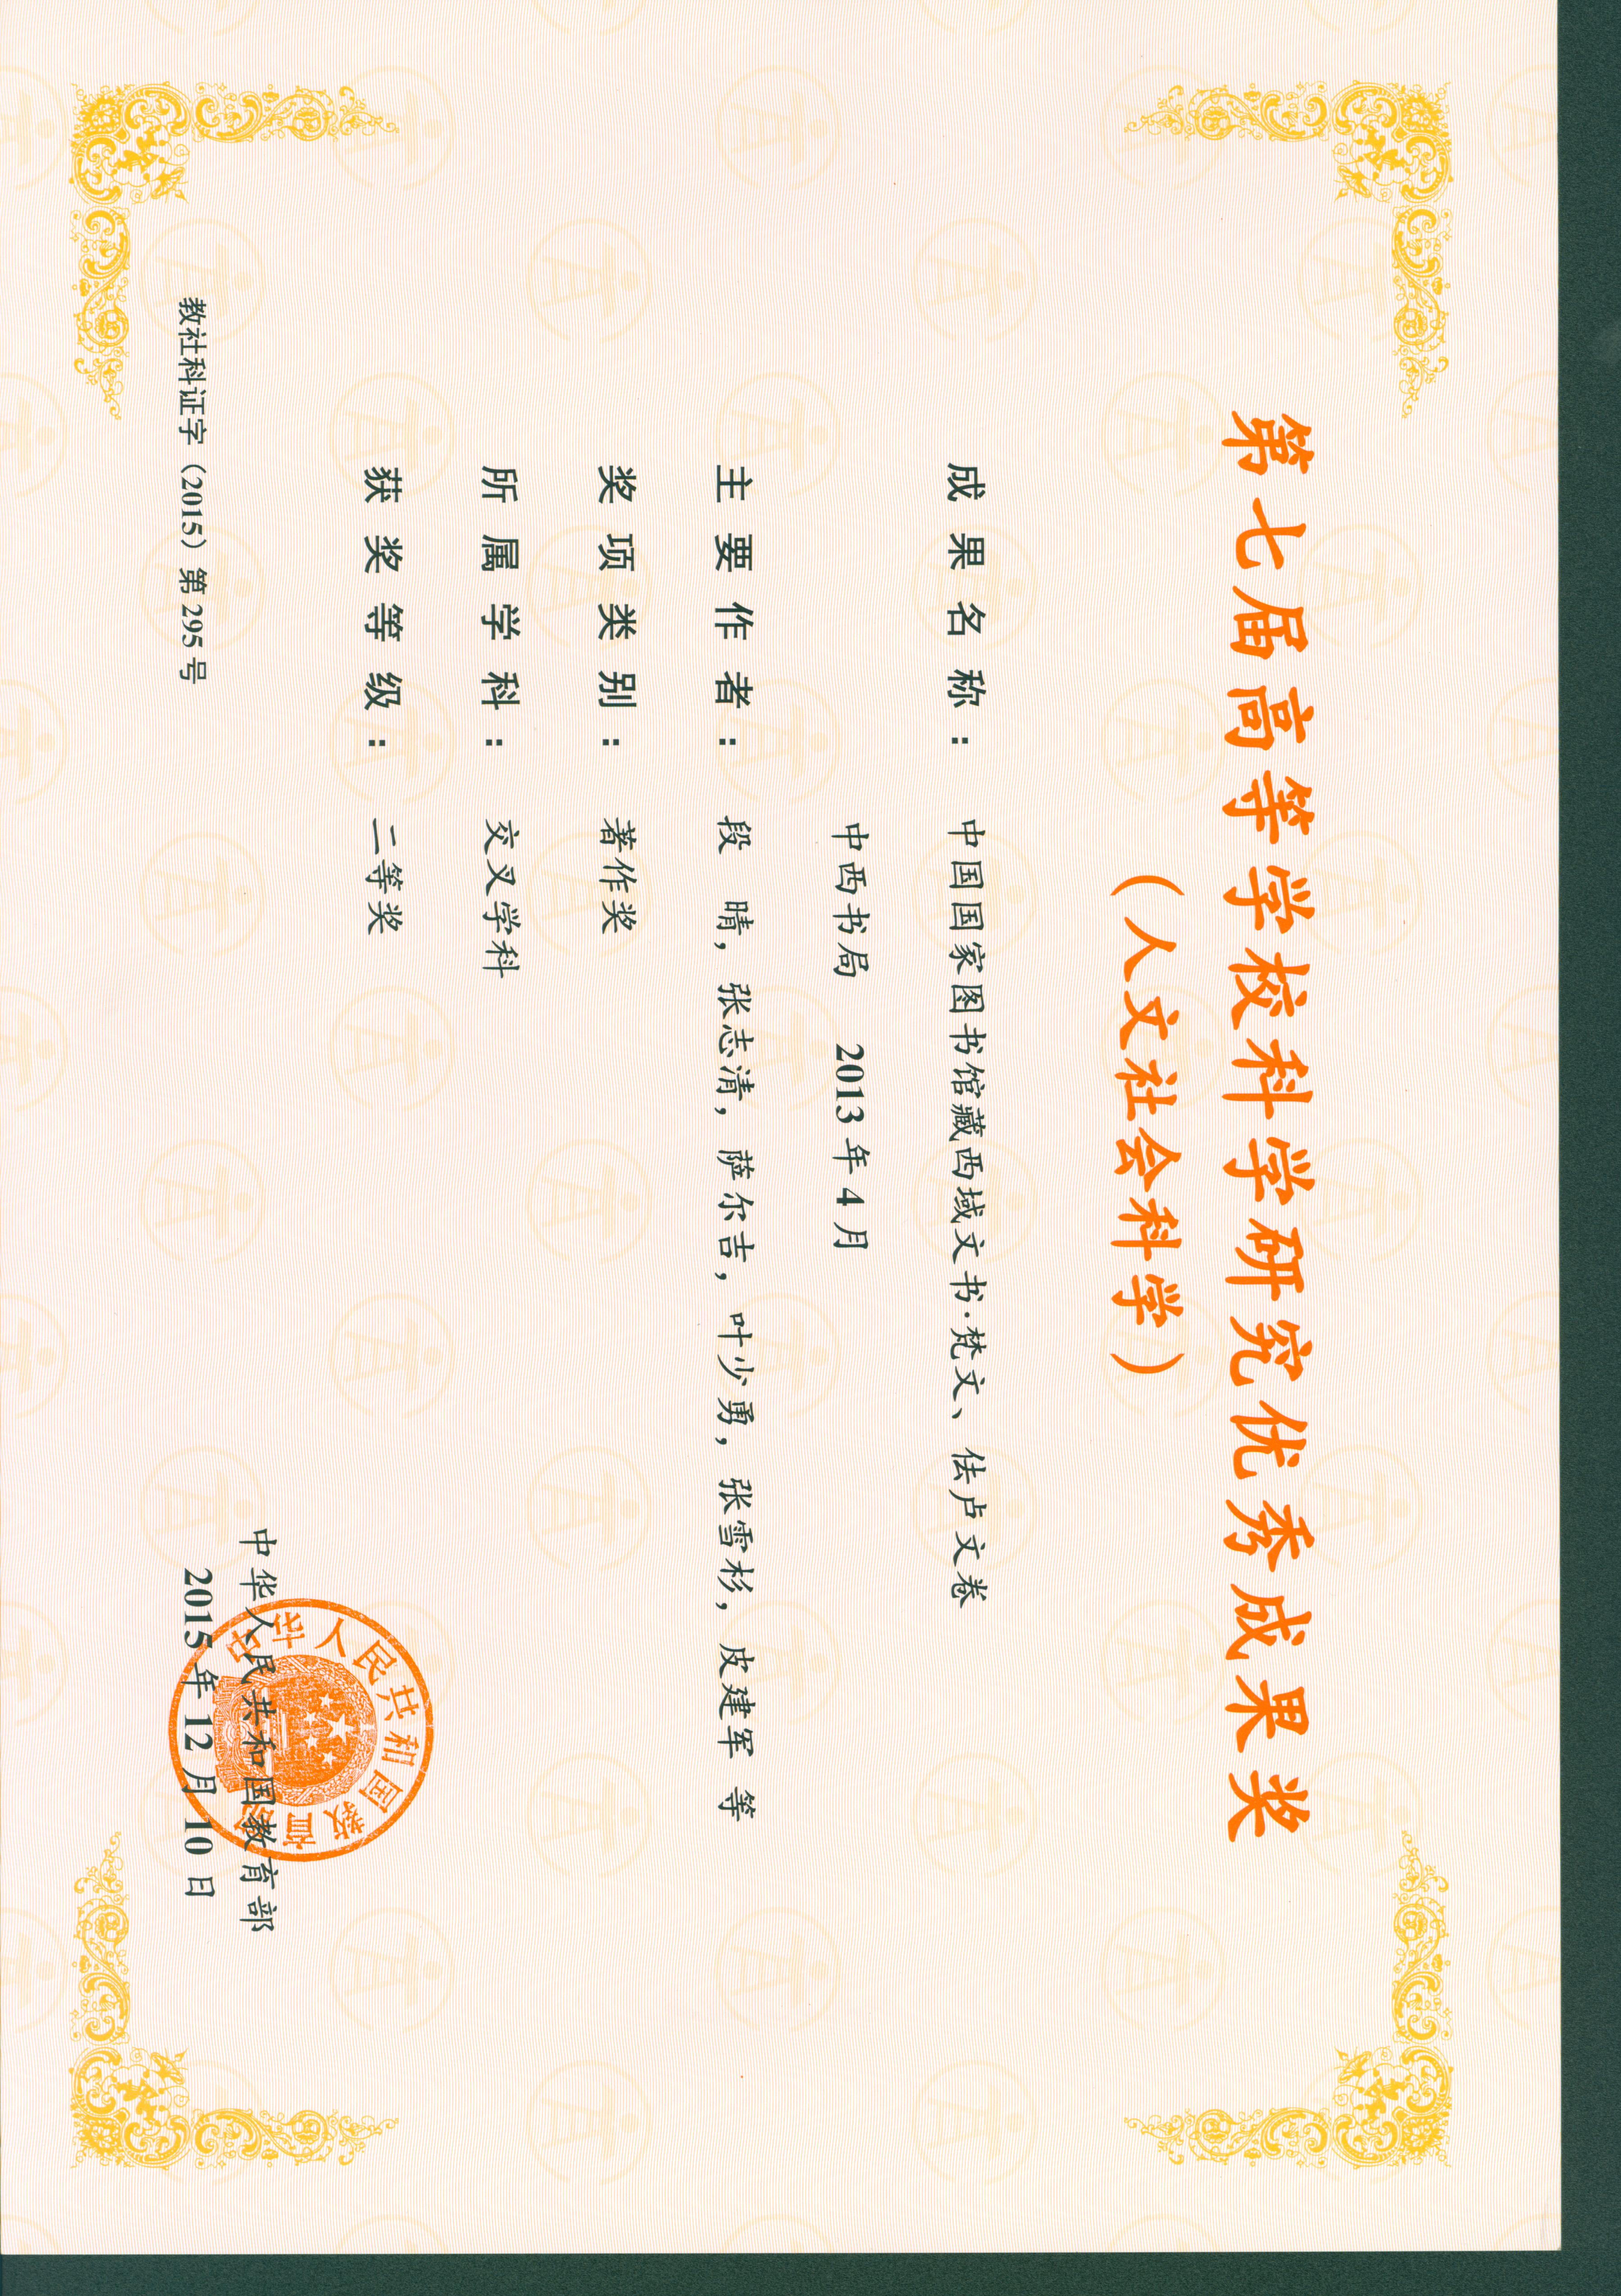 第七届高等学校科学研究优秀成果奖
（人文社会科学）
成果名称： 中国国家图书馆藏西域文书·梵文、佉卢文卷
中西书局 2013年4月
主要作者： 段 晴，张志清，萨尔吉，叶少勇，张雪杉，皮建军 等
奖项类别： 著作奖
所属学科： 交叉学科
获奖等级： 二等奖
中华人民共和国教育部
中华人民共和国教育部
教社科证字（2015）第295号
2015年12月10日